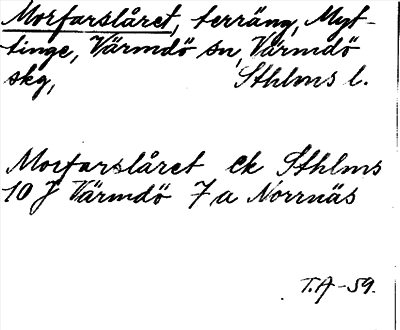 Morfarslåret, terräng, Myt-
tinge, Värmdö sn, Värmdö
skg, Sthlms l.
Morfarslåret ek Sthlms
10 J Värmdö 7 a Norrnäs
T.A-59.